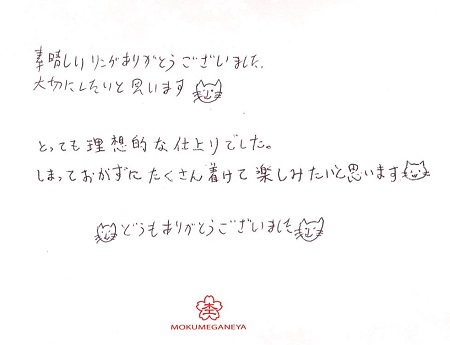 素晴しいリングありがとうございました。
大切にしたいと思います
とっても理想的な仕上りでした。
しまっておかずにたくさん着けて楽しみたいと思います
どうもありがとうございました
杢
MOKUMEGANEYA